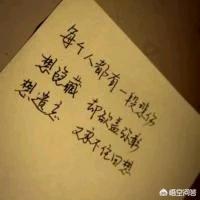 每个人都有一段悲伤
想隐藏 却欲盖弥彰
想遗忘 又忍不住回想
悟空问答